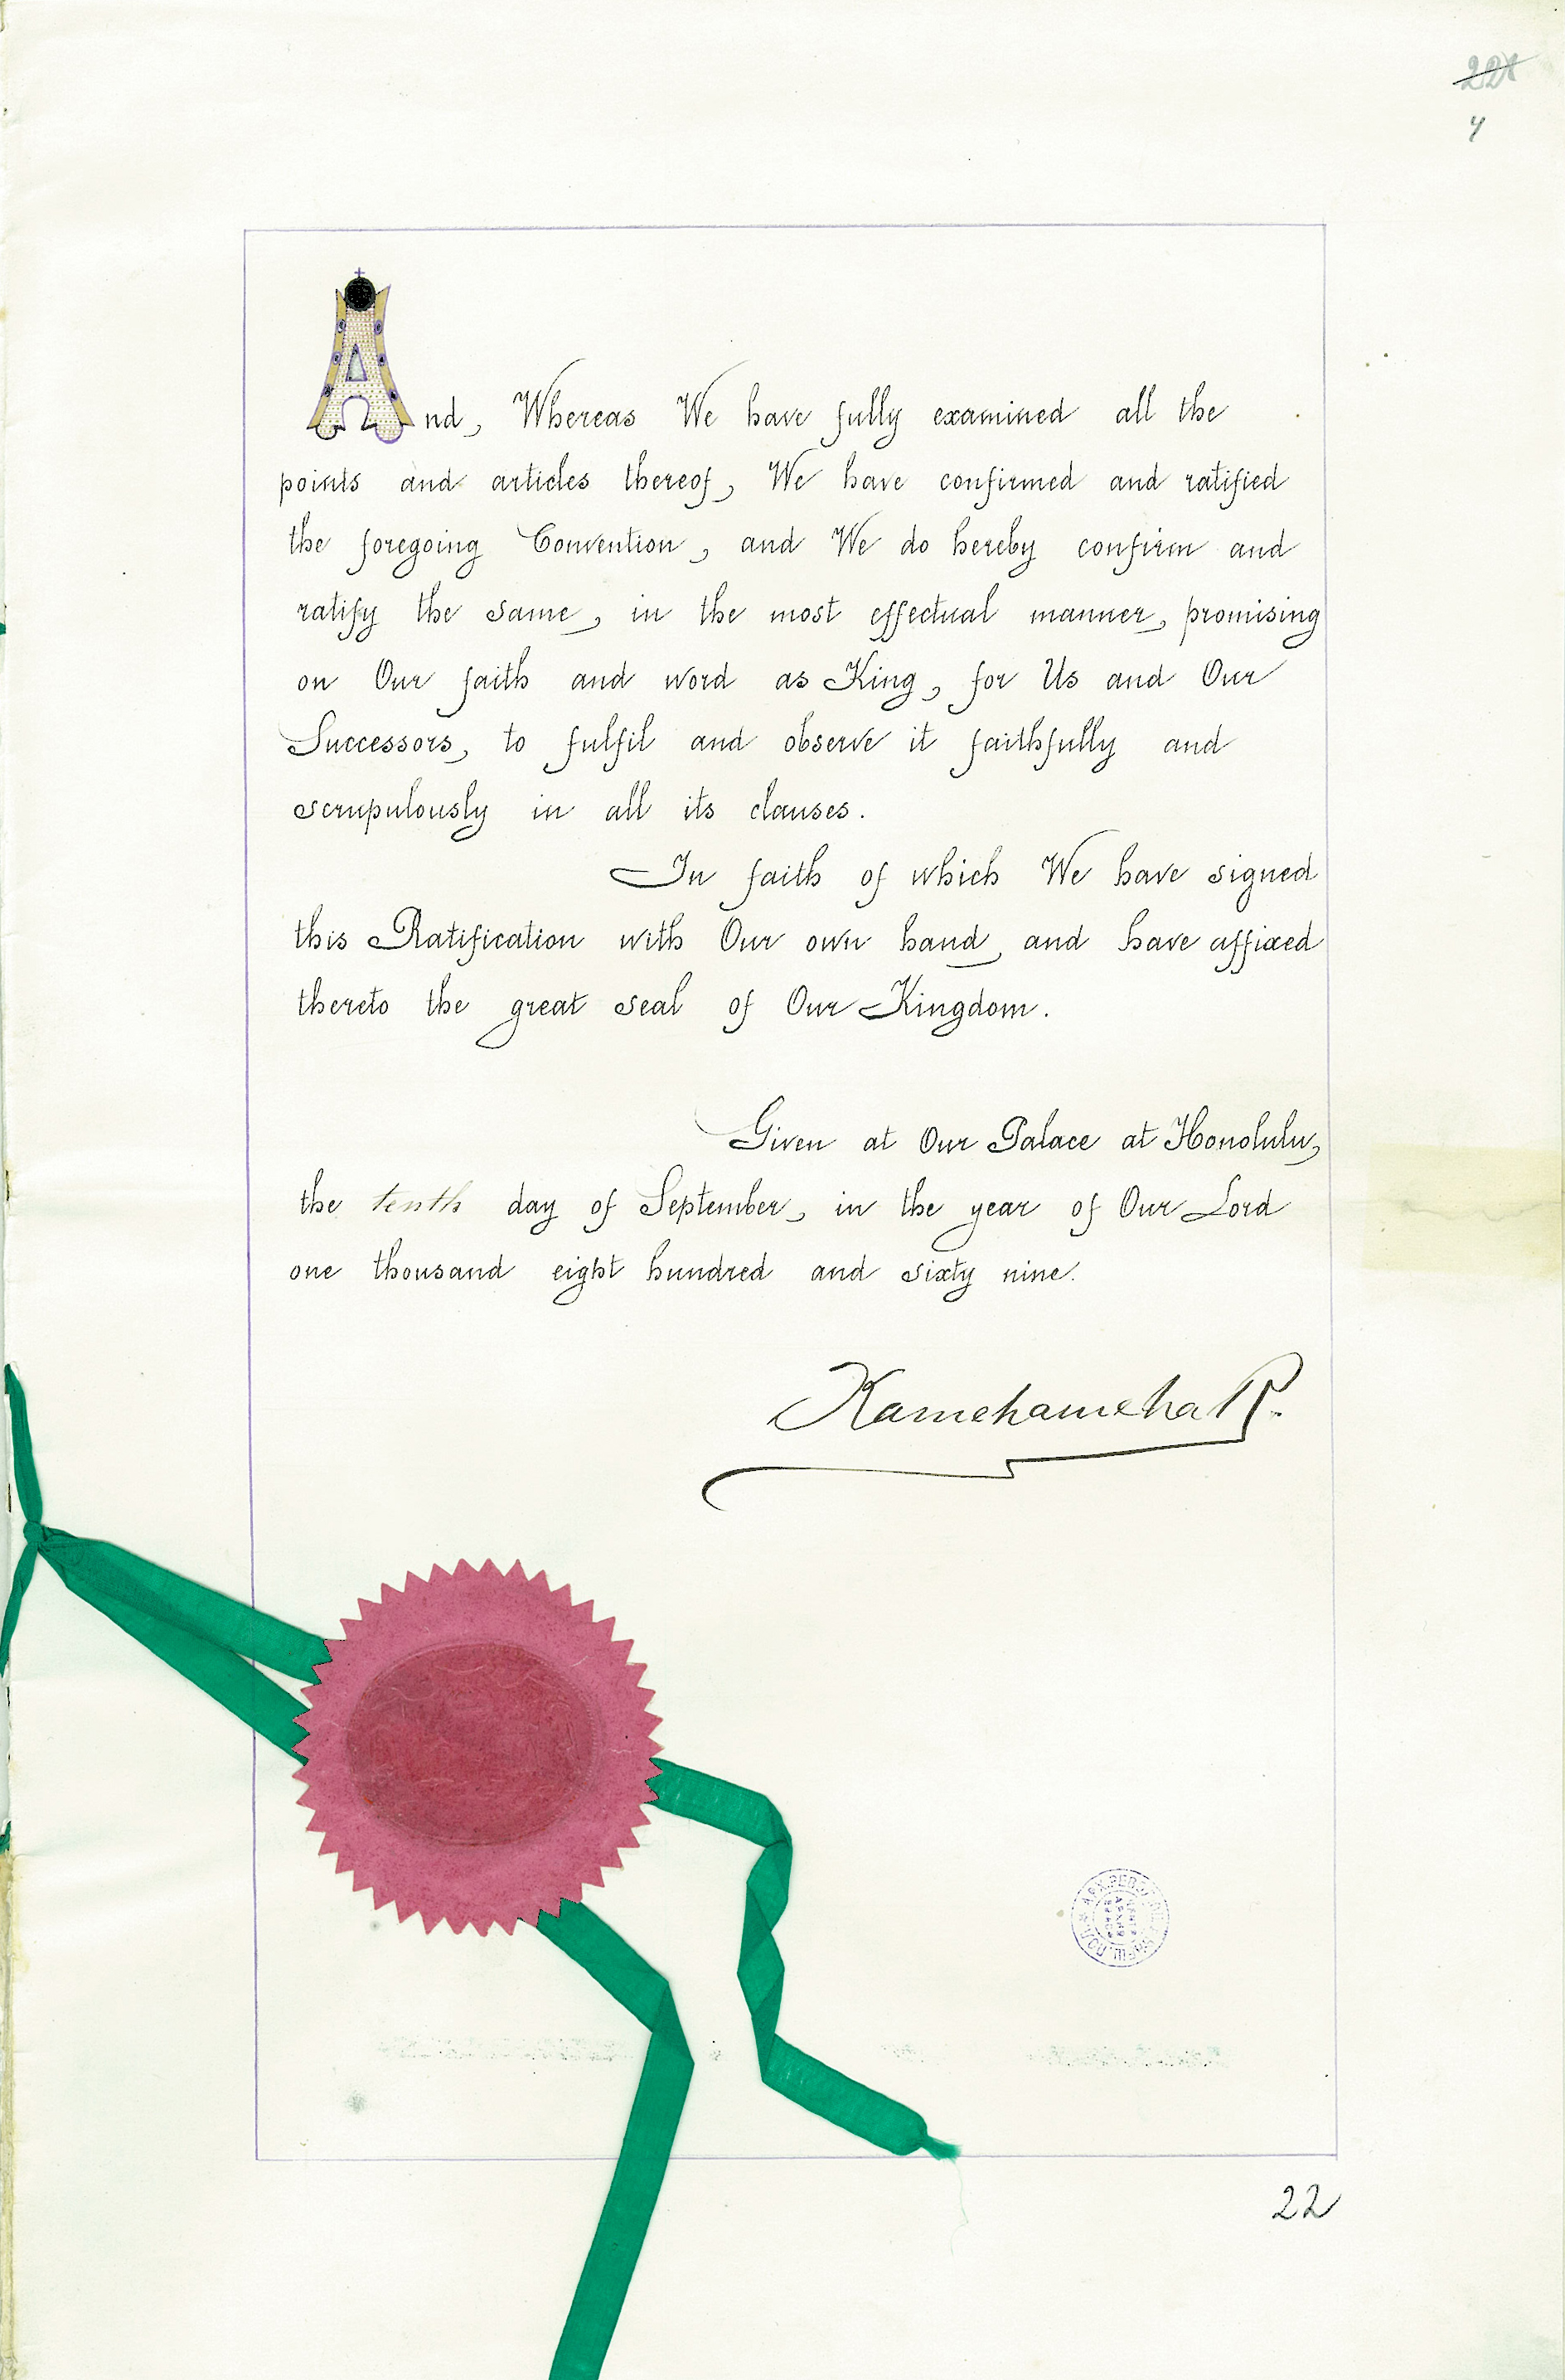 221
4
And, Whereas We have fully examined all the
points and articles thereof, We have confirmed and ratified
the foregoing Convention, and We do hereby confirm and
ratify the same, in the most effectual manner, promising
on Our faith and word as King, for Us and Our
Successors, to fulfil and observe it faithfully and
scrupulously in all its clauses.
In faith of which We have signed
this Ratification with Our own hand, and have affixed
thereto the great seal of Our Kingdom.
Given at Our Palace at Honolulu,
the tenth day of September, in the year of Our Lord
one thousand eight hundred and sixty nine.
Kamehameha R.
22